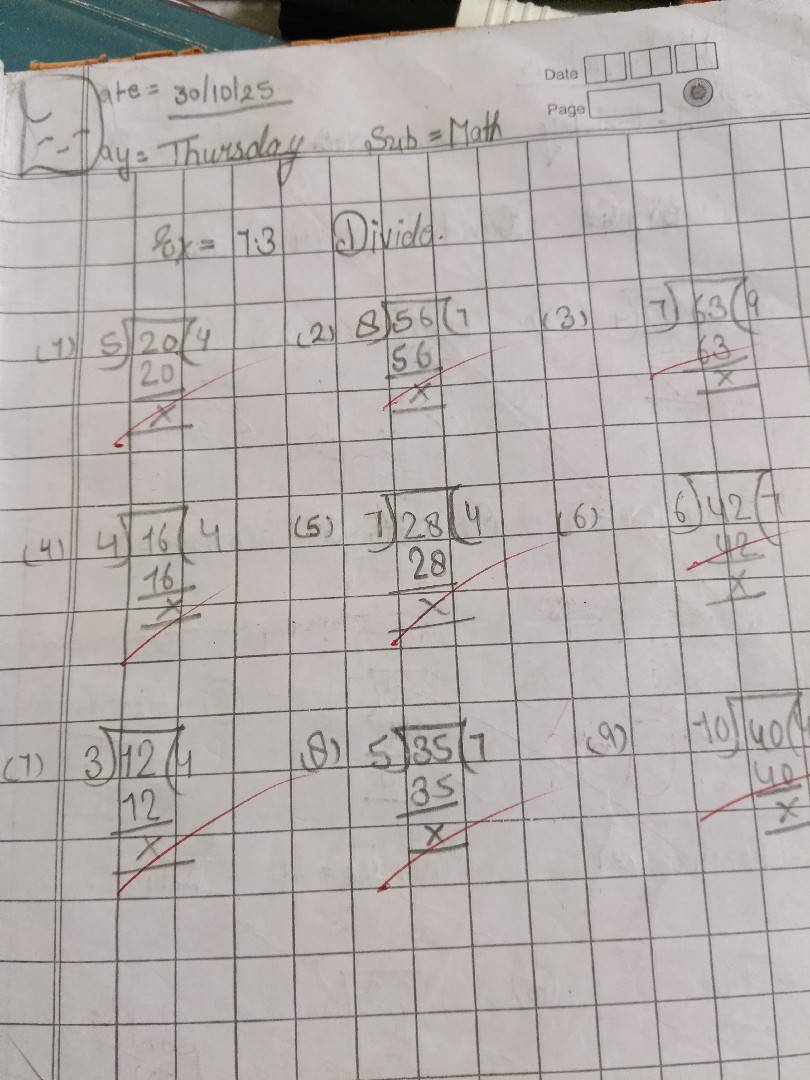 Date
Date = 30/10/25
Page
Day = Thursday Sub = Math
Ex = 7.3 Divide.
(1) 5)20(4 (2) 8)56(7 (3) 7)63(9
20 56 63
x x x
(4) 4)16(4 (5) 7)28(4 (6) 6)42(7
16 28 42
x x x
(7) 3)12(4 (8) 5)35(7 (9) 10)40(4
12 35 40
x x x